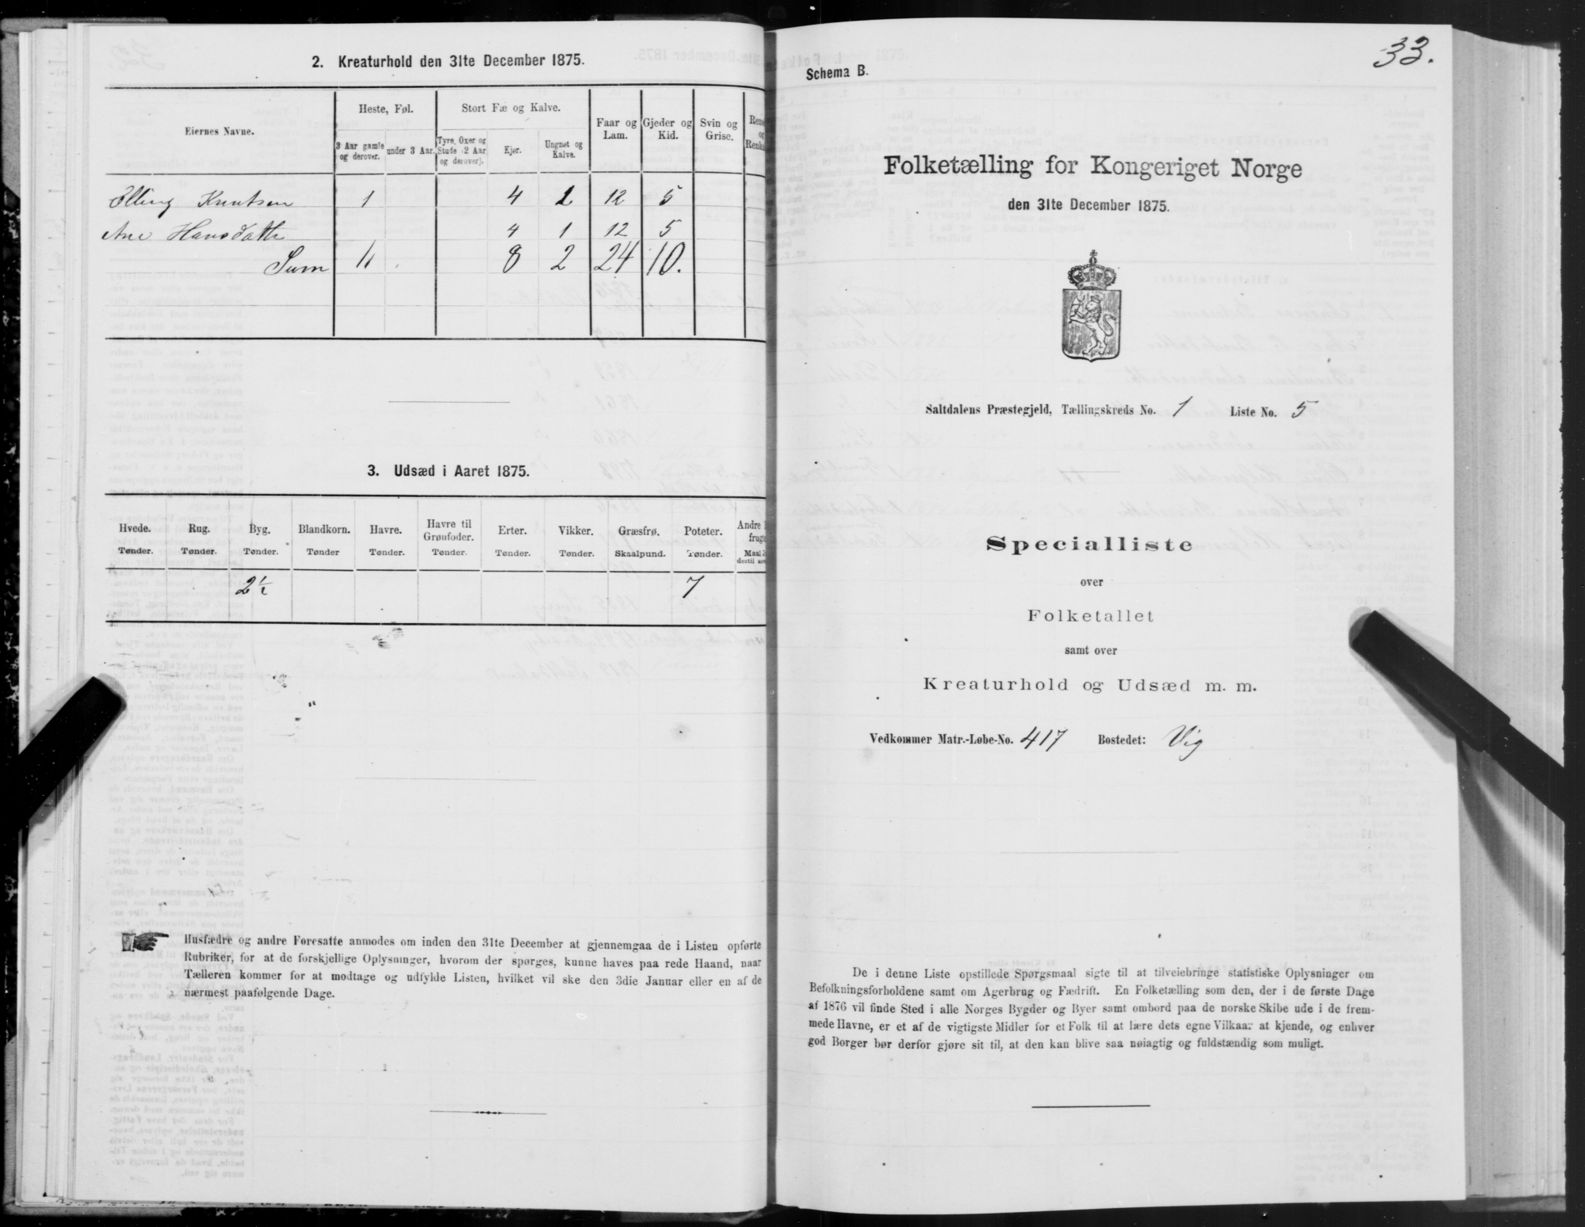 2. Kreaturhold den 31te December 1875.
Eiernes Navne.
Heste, Føl.
Stort Fæ og Kalve.
Faar og Lam.
Gjeder og Kid.
Svin og Grise.
3 Aar gamle og derover.
under 3 Aar.
Tyre, Oxer og Stude (2 Aar og derover).
Kjør.
Ungnøt og Kalve.
Elling Knutsen 1 4 1 12 5
Ane Hansdatter 4 1 12 5
Sum 1 8 2 24 10.
3. Udsæd i Aaret 1875.
Hvede. Rug. Byg. Blandkorn. Havre. Havre til Grønfoder. Erter. Vikker. Græsfrø. Poteter. Andre
Tønder. Tønder. Tønder. Tønder Tønder. Tønder. Tønder. Tønder. Skaalpund. Tønder.
2½ 7
Husfædre og andre Foresatte anmodes om inden den 31te December at gjennemgaa de i Listen opførte
Rubriker, for at de forskjellige Oplysninger, hvorom der spørges, kunne haves paa rede Haand, naar
Tælleren kommer for at modtage og udfylde Listen, hvilket vil ske den 3die Januar eller en af de
nærmest paafølgende Dage.
33.
Schema B.
Folketælling for Kongeriget Norge
den 31te December 1875.
Saltdalens Præstegjeld, Tællingskreds No. 1 Liste No. 5
Specialliste
over
Folketallet
samt over
Kreaturhold og Udsæd m. m.
Vedkommer Matr.-Løbe-No. 417 Bostedet: Vig
De i denne Liste opstillede Spørgsmaal sigte til at tilveiebringe statistiske Oplysninger om
Befolkningsforholdene samt om Agerbrug og Fædrift. En Folketælling som den, der i de første Dage
af 1876 vil finde Sted i alle Norges Bygder og Byer samt ombord paa de norske Skibe ude i de frem-
mede Havne, er et af de vigtigste Midler for et Folk til at lære dets egne Vilkaar at kjende, og enhver
god Borger bør derfor gjøre sit til, at den kan blive saa nøiagtig og fuldstændig som muligt.